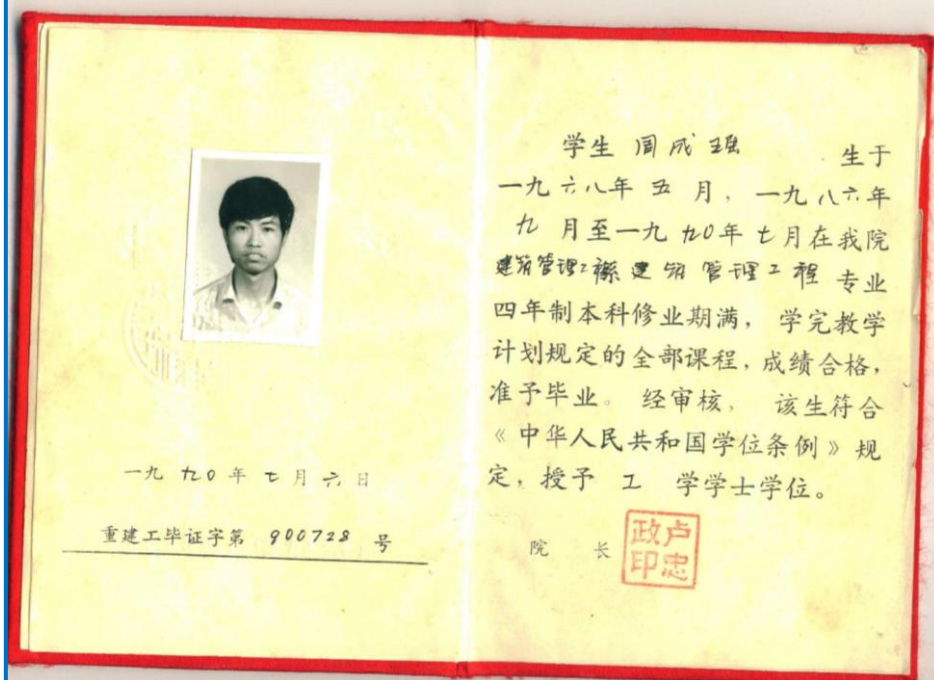 一九九0年七月六日
重建工毕证字第 900728 号
学生 闫成强 生于
一九六八年五月，一九八六年
九月至一九九0年七月在我院
建筑管理工程系建筑管理工程专业
四年制本科修业期满，学完教学
计划规定的全部课程，成绩合格，
准予毕业。经审核，该生符合
《中华人民共和国学位条例》规
定，授予 工 学学士学位。
院 长
卢忠政印